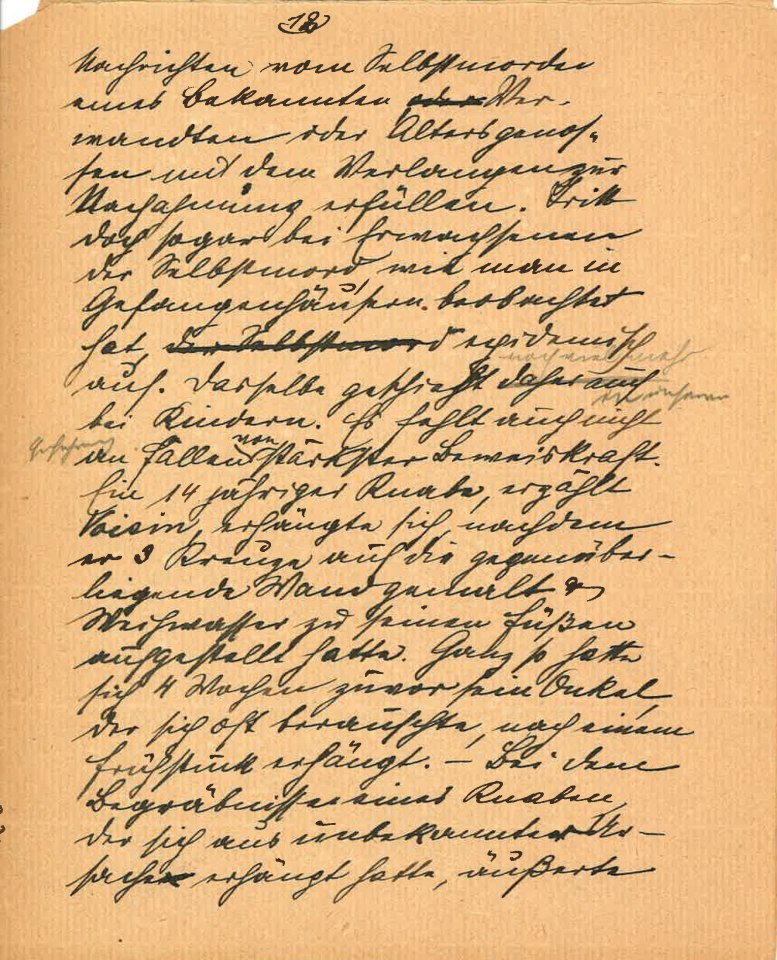 18
Nachrichten vom Selbstmorde
eines Bekannten oder Ver-
wandten oder Altersgenos-
sen mit dem Verlangen zur
Nachahmung erfüllen. Tritt
doch sogar bei Erwachsenen
der Selbstmord, wie man in
Gefangenhäusern beobachtet
hat, der Selbstmord epidemisch
noch viel mehr
auf. Dasselbe geschieht daher auch
bei Kindern. Es fehlt auch nicht
von
an Fällen stärkster Beweiskraft.
Ein 14 jähriger Knabe, erzählt
Voisin, erhängte sich, nachdem
er 3 Kreuze auf die gegenüber-
liegende Wand gemalt &
Weihwasser zu seinen Füßen
aufgestellt hatte. Ganz so hatte
sich 4 Wochen zuvor sein Onkel,
der sich oft berauschte, nach einem
Frühstück erhängt. – Bei dem
Begräbnisse eines Knaben,
der sich aus unbekannter Ur-
sache erhängt hatte, äußerte